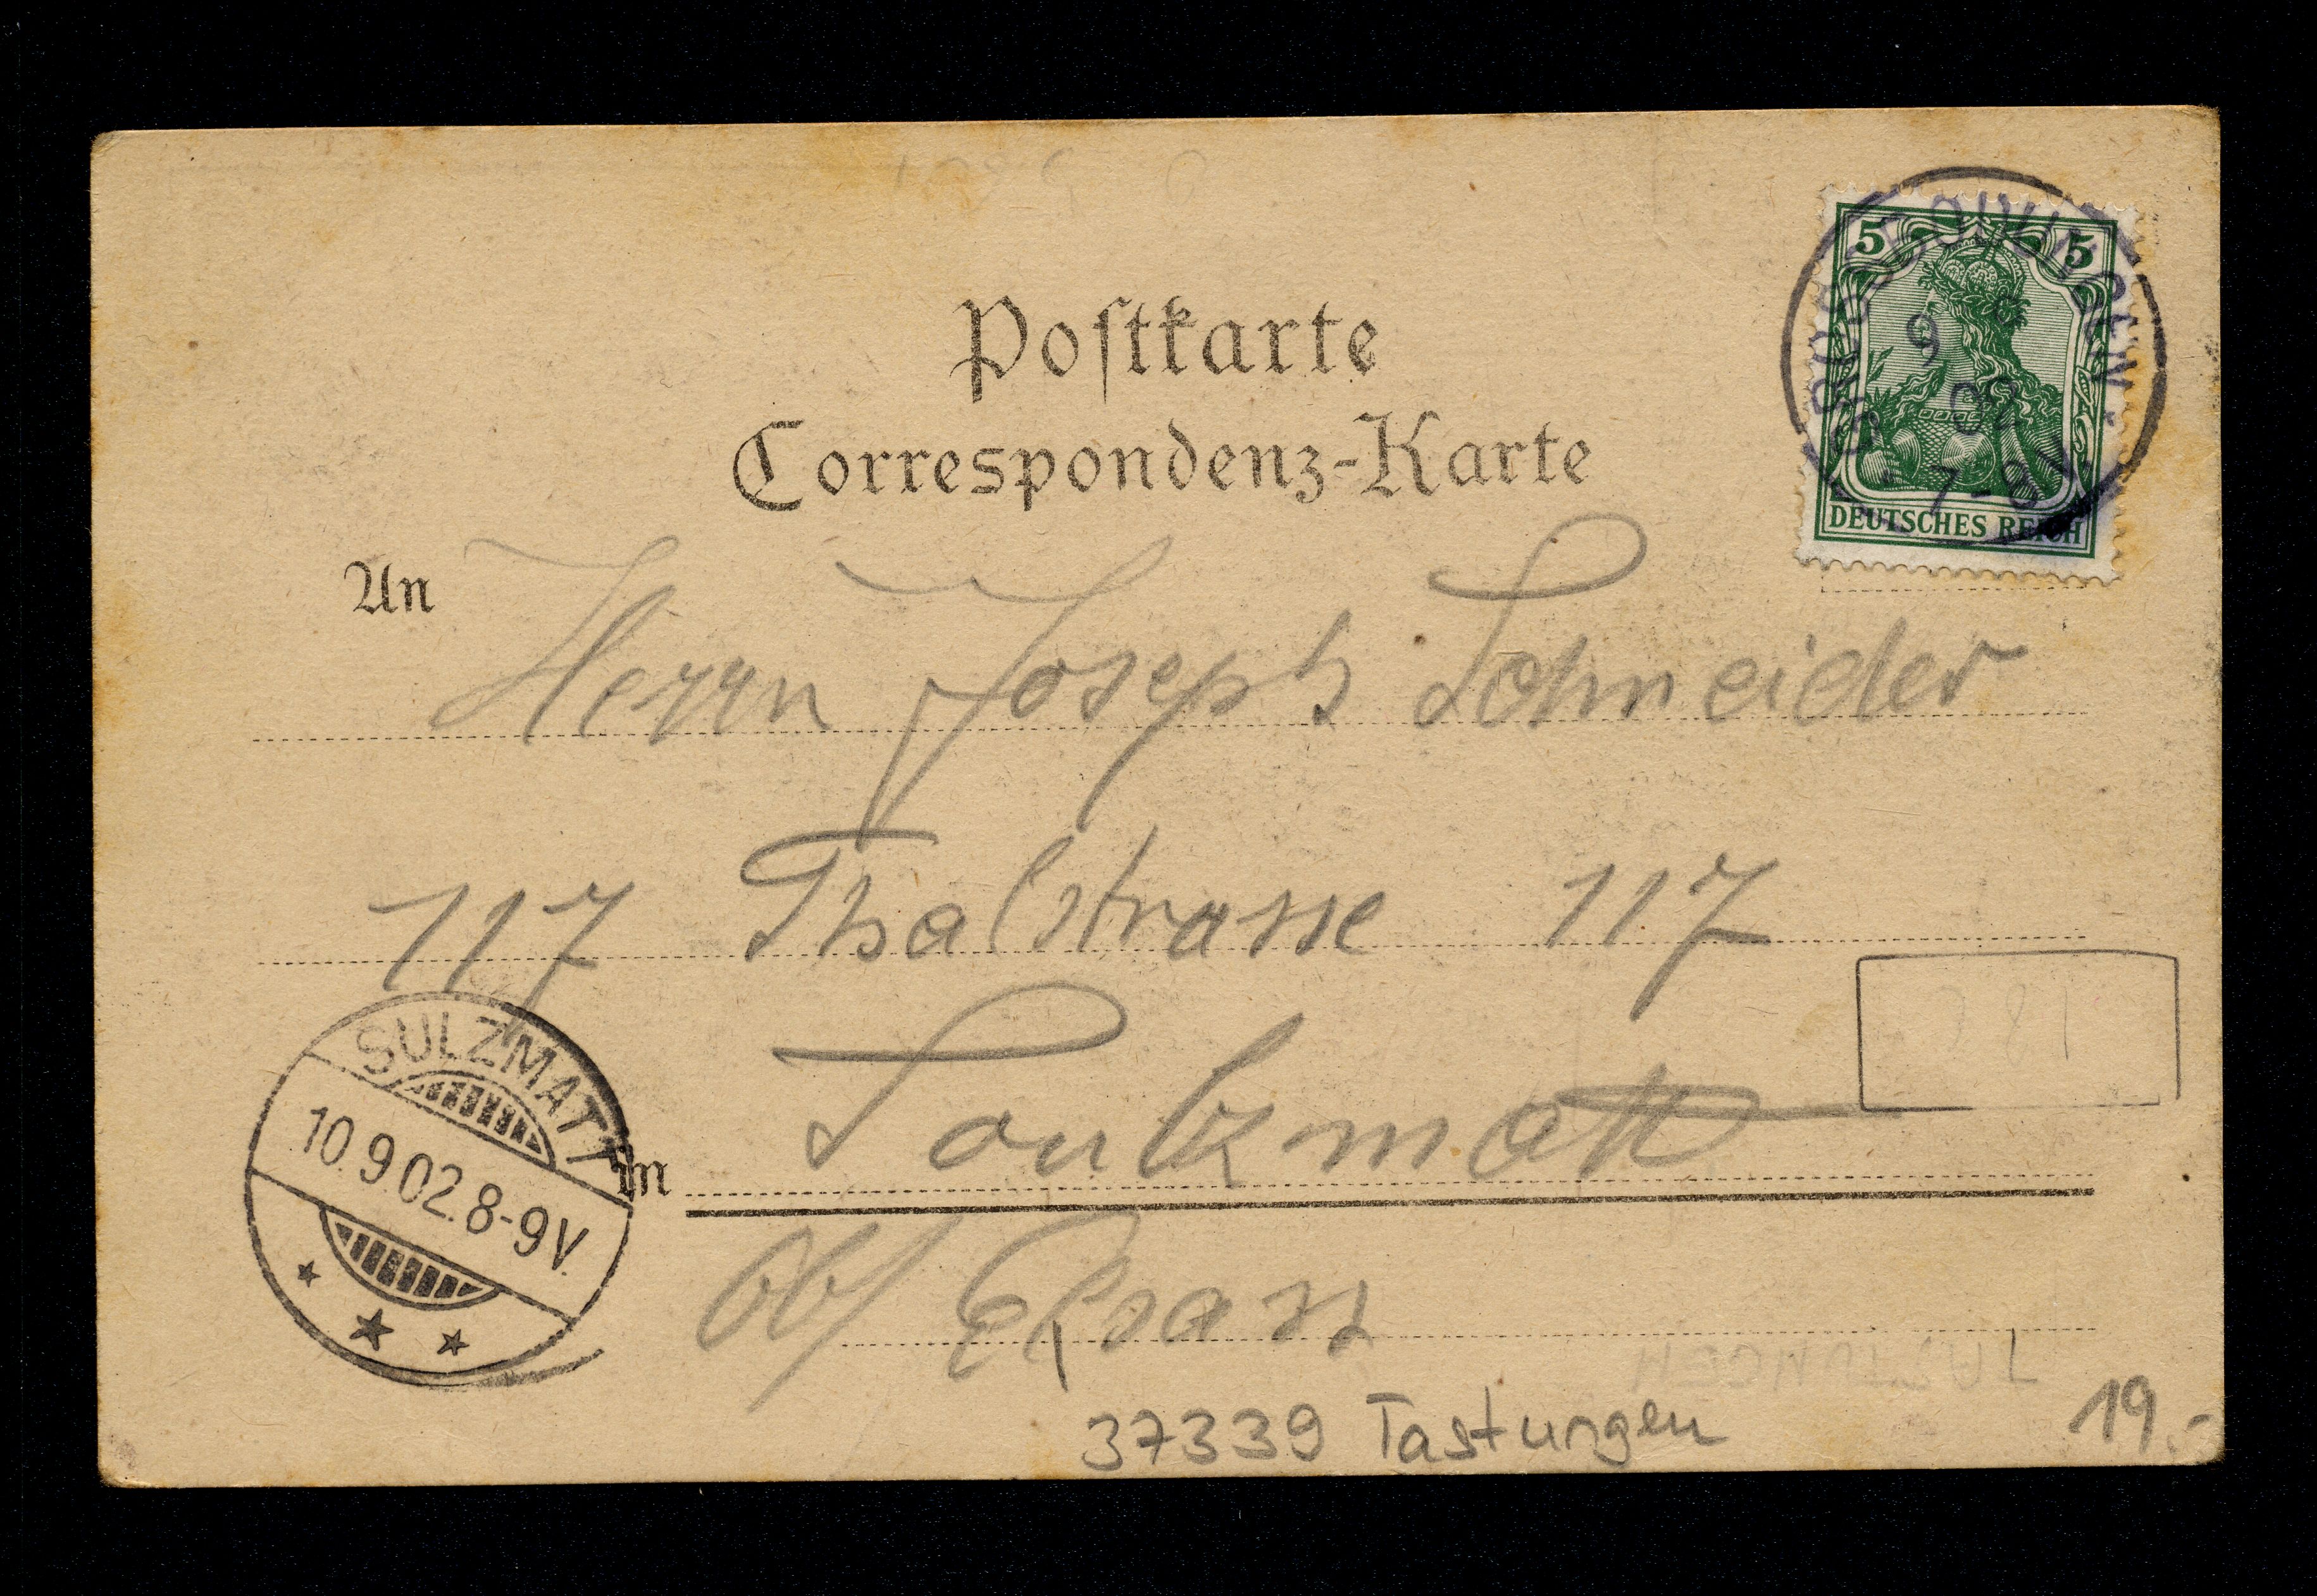 Postkarte
Correspondenz-Karte
5 5
9 9
02
7-8V.
DEUTSCHES REICH
An
Herrn Joseph Schneider
117 Thalstrasse 117
SULZMATT
10.9.02.8-9V.
in Soulzmatt
Ob/ Elsass
TASTUNGEN
37339 Tastungen
19.-